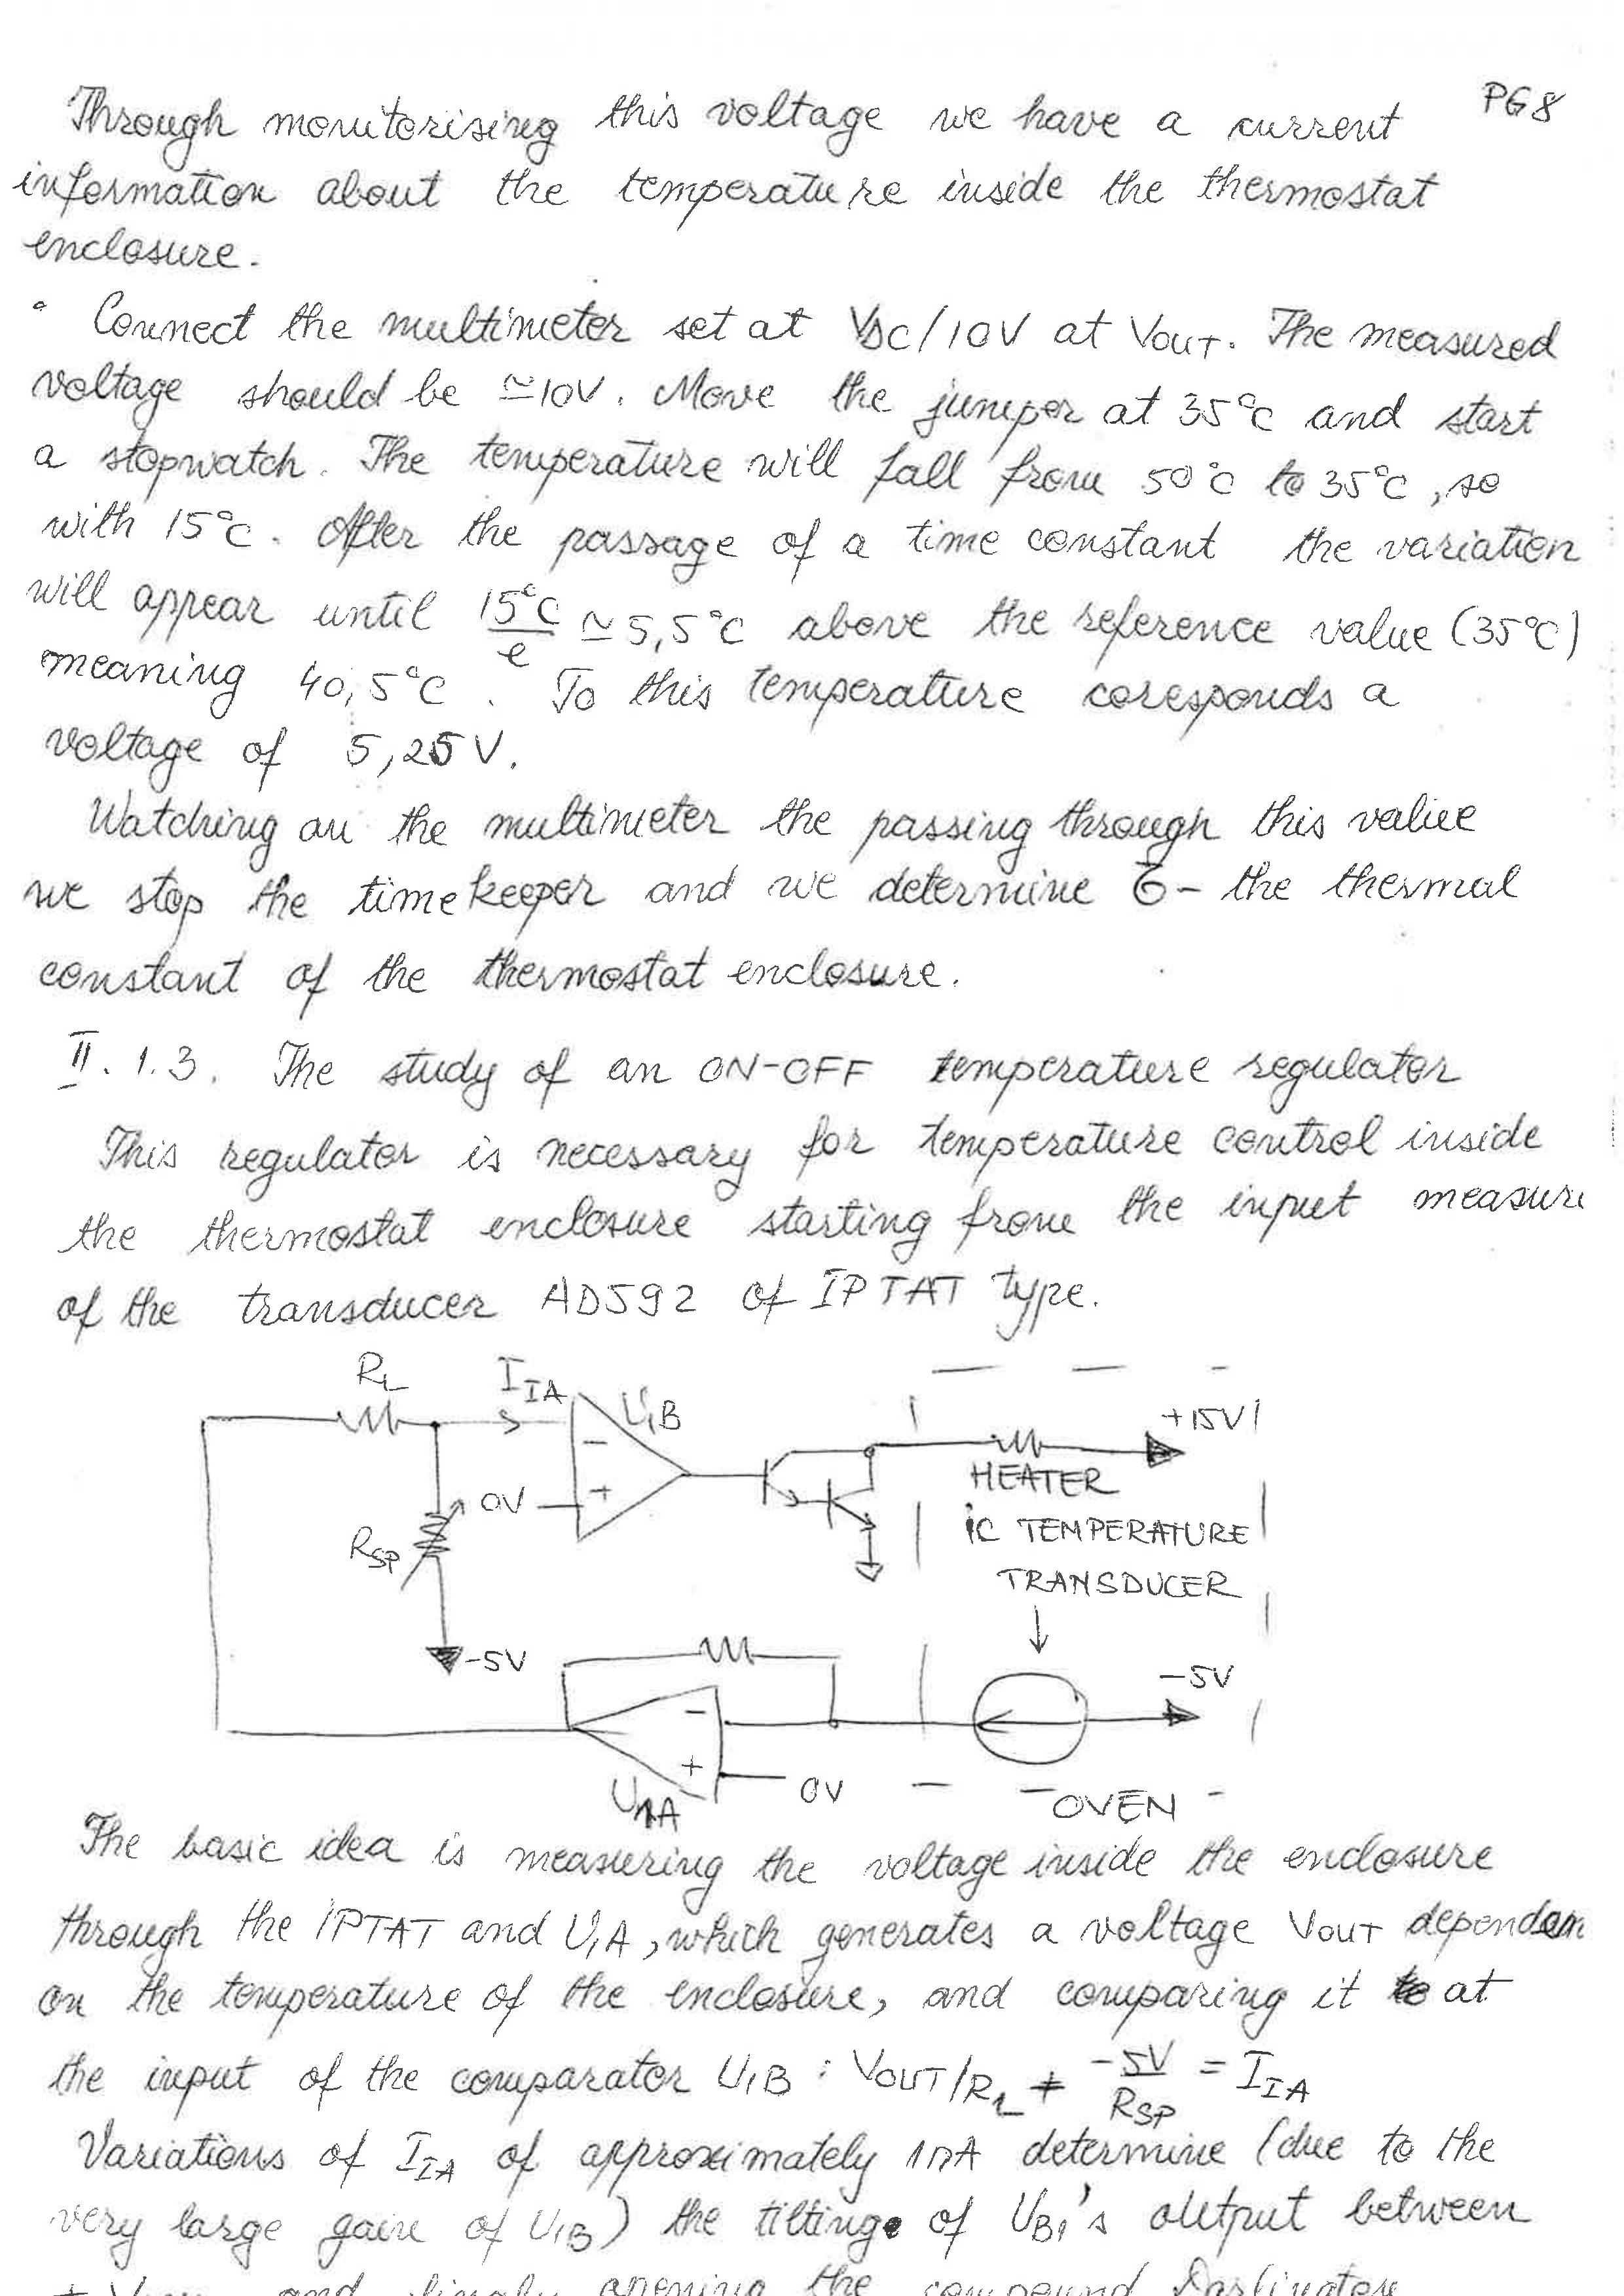 PG8
Through monitorising this voltage we have a current
information about the temperature inside the thermostat
enclosure.
• Connect the multimeter set at VDC/10V at VOUT. The measured
voltage should be ≃10V. Move the jumper at 35°C and start
a stopwatch. The temperature will fall from 50°C to 35°C, so
with 15°C. After the passage of a time constant the variation
will appear until 15°C/e ≃ 5,5°C above the reference value (35°C)
meaning 40,5°C. To this temperature coresponds a
voltage of 5,25V.
Watching on the multimeter the passing through this value
we stop the timekeeper and we determine τ - the thermal
constant of the thermostat enclosure.
II.1.3. The study of an ON-OFF temperature regulator
This regulator is necessary for temperature control inside
the thermostat enclosure starting from the input measure
of the transducer AD592 of IPTAT type.
RL
IIA
U1B
-
+
0V
RSP
-5V
+15V
HEATER
IC TEMPERATURE
TRANSDUCER
-5V
-
+
0V
U1A
OVEN
The basic idea is measuring the voltage inside the enclosure
through the IPTAT and U1A, which generates a voltage VOUT dependan
on the temperature of the enclosure, and comparing it at
the input of the comparator U1B : VOUT/R1 + -5V/RSP = IIA
Variations of IIA of approximately 1nA determine (due to the
very large gain of U1B) the tilting of UB1's output between
and finaly opening the compound Darlington